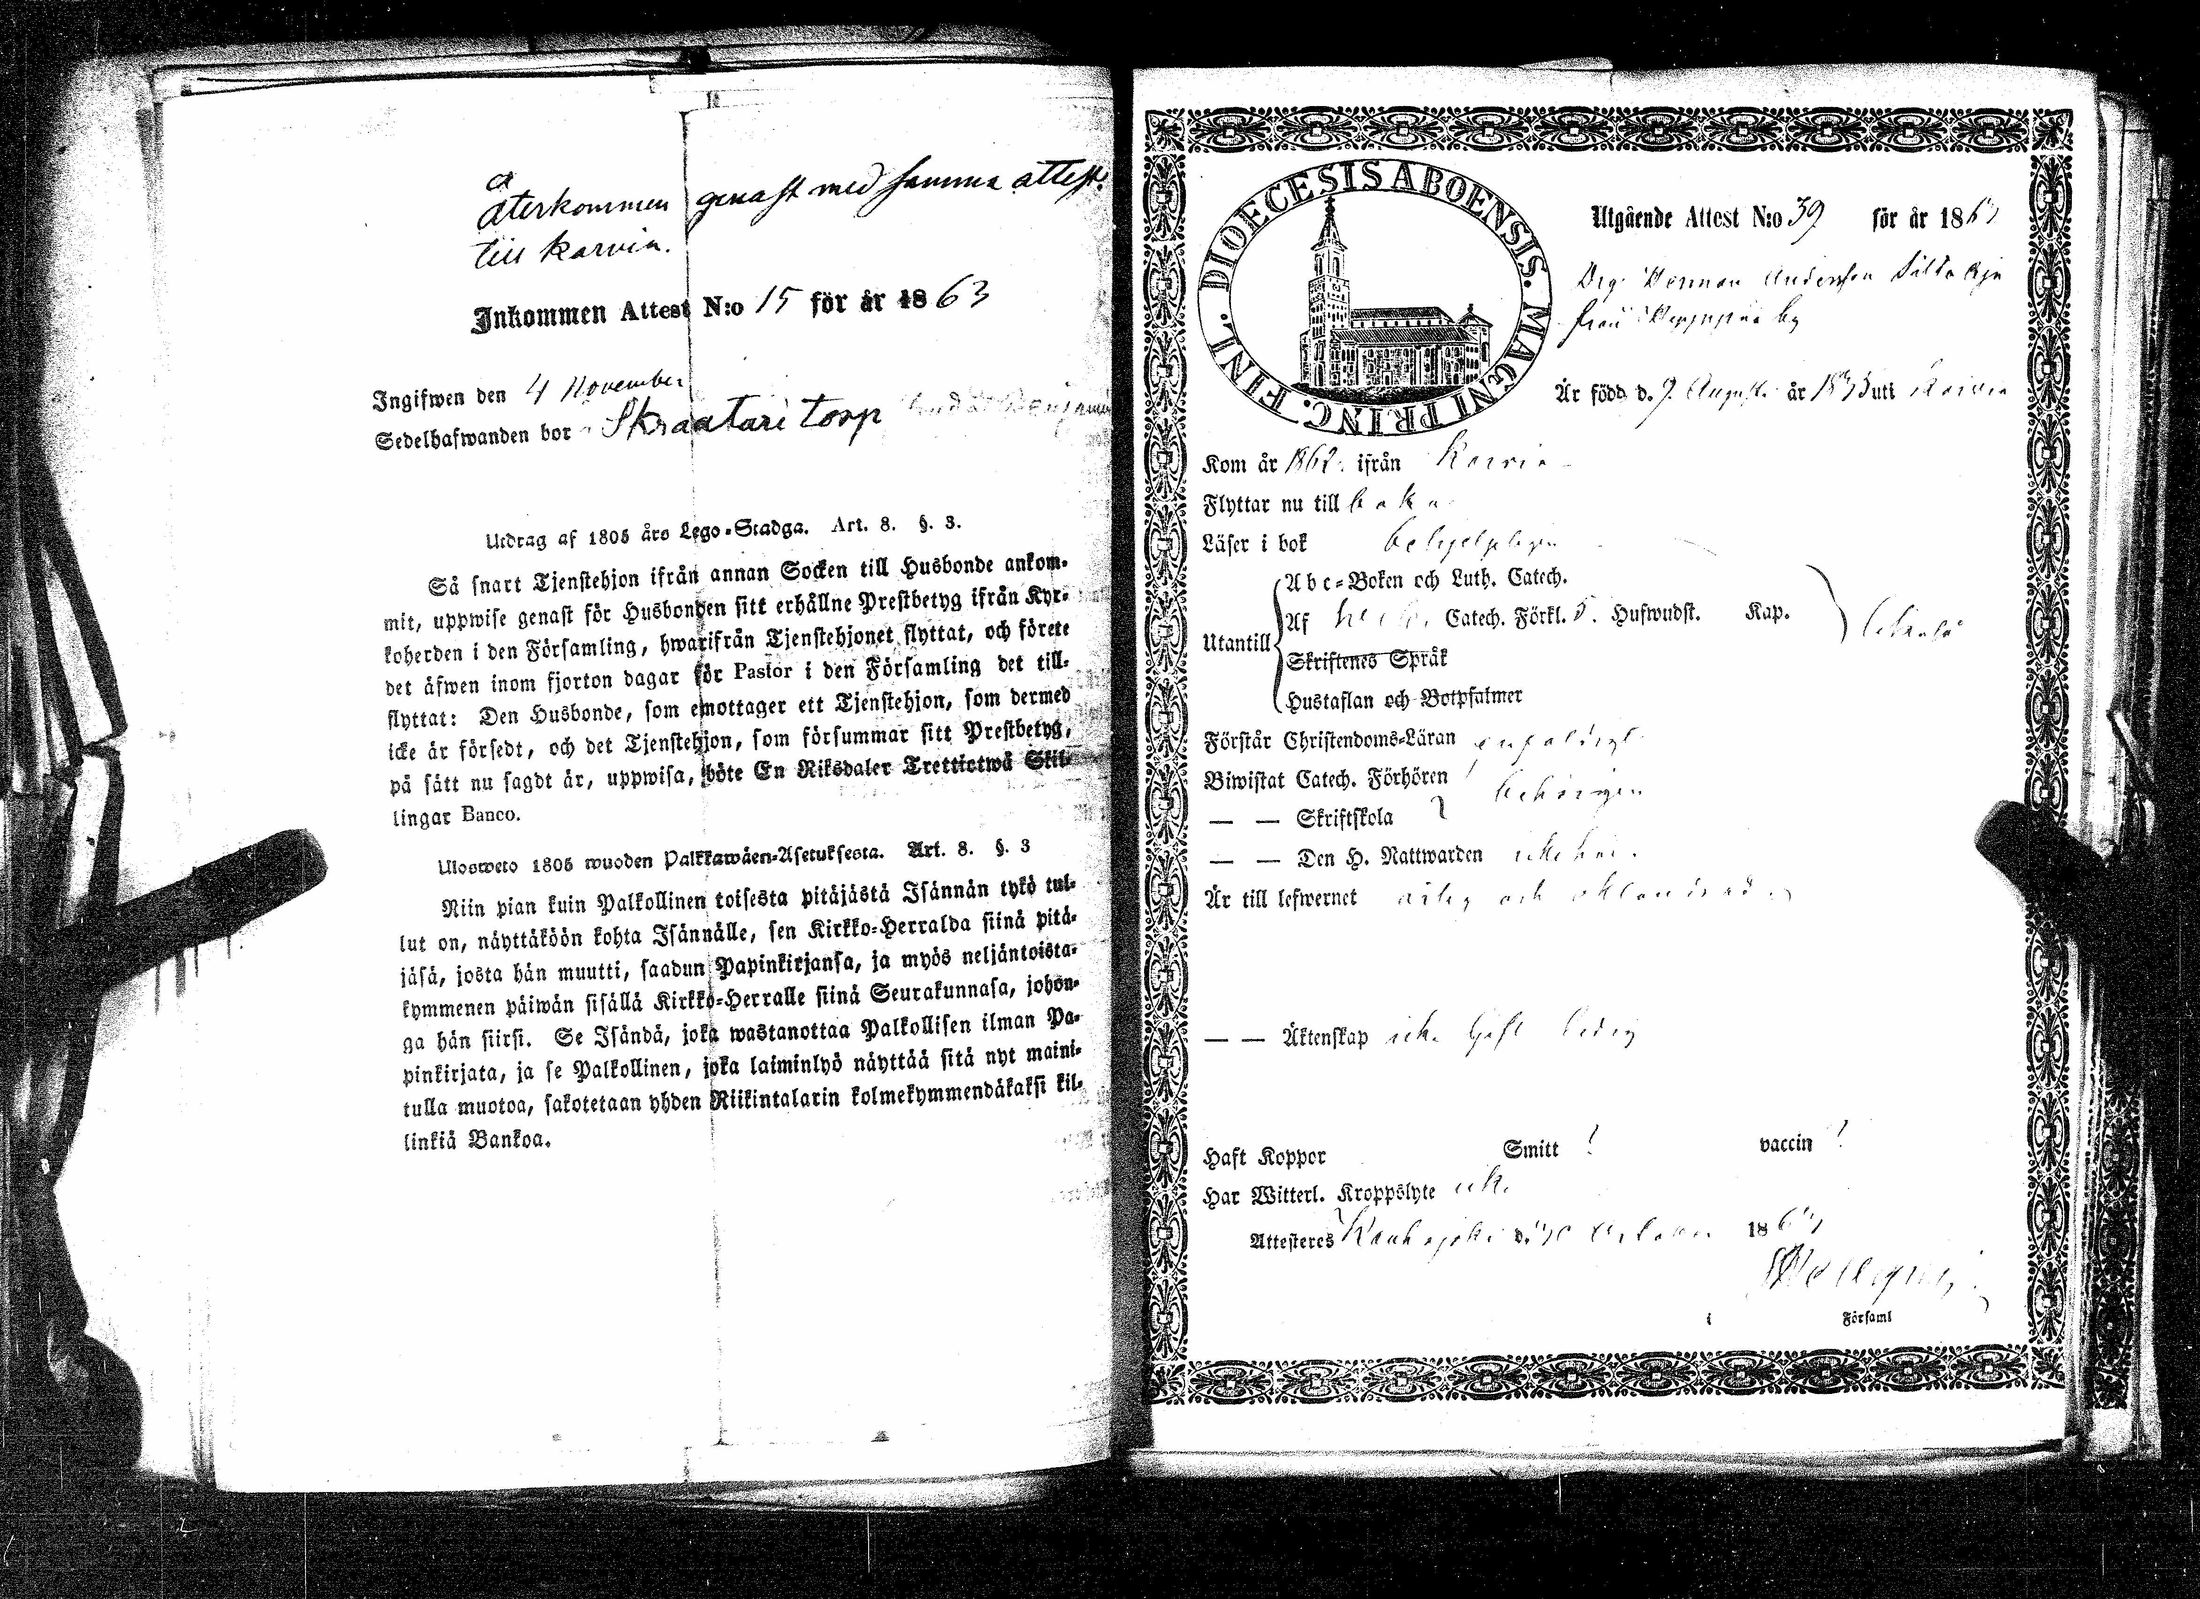 Återkommen genast med samma attest
till Karvia.
Inkommen Attest N:o 15 för år 1863
Ingifwen den 4 November
Sedelhafwanden bor Skraatari torp
Utdrag af 1805 års Lego-Stadga. Art. 8. §. 3.
Så snart Tjenstehjon ifrån annan Socken till Husbonde ankom-
mit, uppwise genast för Husbonden sitt erhållne Prestbetyg ifrån Kyr-
koherden i den Församling, hwarifrån Tjenstehjonet flyttat, och förete
det äfwen inom fjorton dagar för Pastor i den Församling det till-
flyttat: Den Husbonde, som emottager ett Tjenstehjon, som dermed
icke är försedt, och det Tjenstehjon, som försummar sitt Prestbetyg,
på sätt nu sagdt är, uppwisa, böte En Riksdaler Trettiotwå Skil-
lingar Banco.
Ulosweto 1805 wuoden Palkkawäen-Asetuksesta. Art. 8. §. 3
Niin pian kuin Palkollinen toisesta pitäjästä Isännän tykö tul-
lut on, näyttäköön kohta Isännälle, sen Kirkko-Herralda siinä pitä-
jäsä, josta hän muutti, saadun Papinkirjansa, ja myös neljäntoista-
kymmenen päiwän sisällä Kirkko-Herralle siinä Seurakunnasa, johon-
ga hän siirsi. Se Isändä, joka wastanottaa Palkollisen ilman Pa-
pinkirjata, ja se Palkollinen, joka laiminlyö näyttää sitä nyt maini-
tulla muotoa, sakotetaan yhden Riikintalarin kolmekymmendäkaksi kil-
linkiä Bankoa.
DIOECESIS ABOENSIS. MAGNI PRINC. FINL.
Utgående Attest N:o 39 för år 186
Drg. Herman Andersson
från by
Är född d. 9 Augusti år 18 uti Karvia
Kom år 1862 ifrån Karvia
Flyttar nu till baka
Läser i bok behjelpligen
Abc-Boken och Luth. Catech.
Utantill Af Catech. Förkl. 5. Hufwudst. Kap.
Skriftenes Språk
Hustaflan och Botpsalmer
Förstår Christendoms-Läran enfaldigt
Biwistat Catech. Förhören
— — Skriftskola behörigen
— — Den H. Nattwarden
Är till lefwernet ärlig och oklandrad
— — Äktenskap icke haft ledig
Haft Koppor Smitt ! vaccin !
Har Witterl. Kroppslyte icke
Attesteres Kauhajoki d. October 186
i Församl